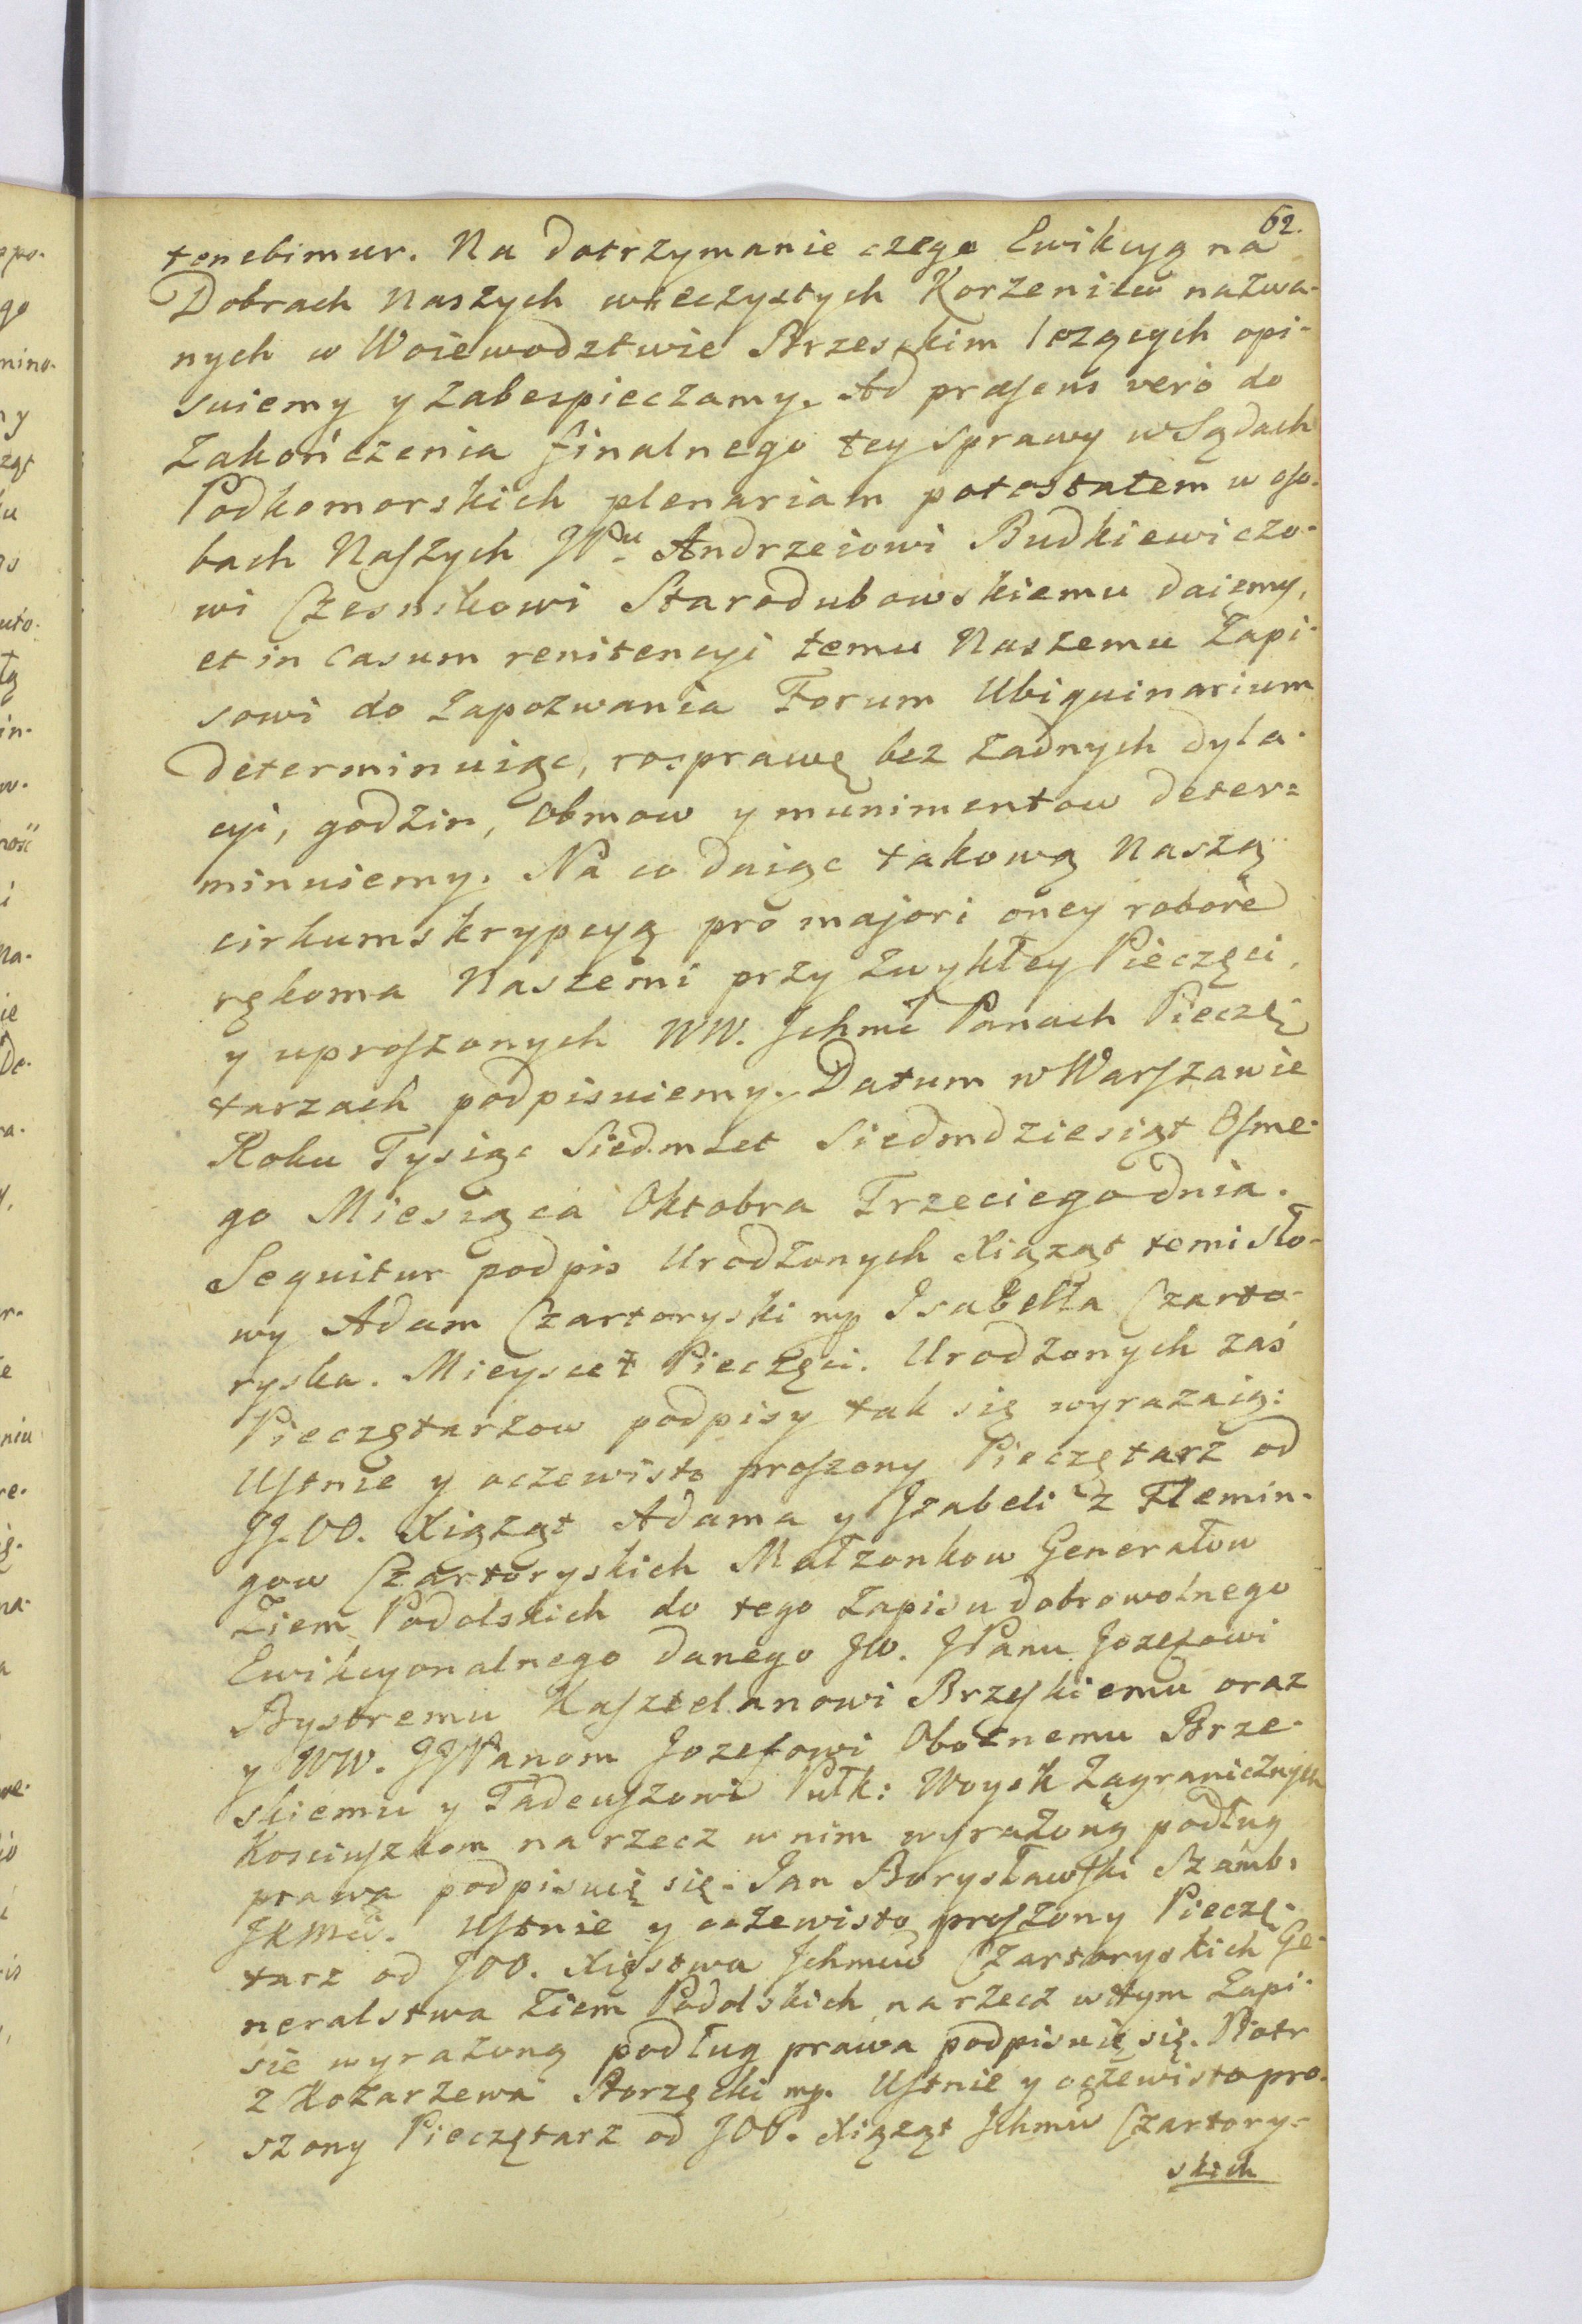 62.
tenebimur. Na dotrzymanie czego Ewikcyą na
Dobrach Naszych wieczystych Korzeniew nazwa-
nych w Woiewodztwie Brzeskim lezących opi-
suiemy y zabespieczamy. Ad præsens verò do
zakończenia finalnego tey sprawy w Sądach
Podkomorskich plenariam potestatem w oso-
bach Naszych JPu Andrzeiowi Budkiewiczo-
wi Czesnikowi Starodubowskiemu daiemy,
et in casum renitencyi temu Naszemu Zapi-
sowi do zapozwania Forum Ubiquinarium
determinuiąc, rosprawę bez żadnych dyla-
cyi, godzin, obmow y munimentow deter-
minuiemy. Na co daiąc takową Naszą
cirkumskrypcyą pro majori oney roborè
rękoma Naszemi przy zwykłey Pieczęci,
y uproszonych WW. Ichmć Panach Pieczę-
tarzach podpisuiemy. Datum w Warszawie
Roku Tysiąc Siedmset Siedmdziesiąt Osme-
go Miesiąca Oktobra Trzeciego dnia.
Sequitur podpis Urodzonych Xiąząt temi sło-
wy Adam Czartoryski mp Isabella Czarto-
ryska. Mieysce Pieczęci. Urodzonych zaś
Pieczętarzow podpisy tak się wyrazaią:
Ustnie y oczewisto proszony Pieczętarz od
JJ. OO. Xiąząt Adama y Izabeli z Flemin-
gow Czartoryskich Małzonkow Generałow
Ziem Podolskich do tego Zapisu dobrowolnego
Ewikcyonalnego danego JW. JPanu Jozefowi
Bystremu Kasztelanowi Brzeskiemu oraz
y WW. JJPanom Jozefowi Oboznemu Brze-
skiemu y Tadeuszowi Pułk: Woysk Zagranicznych
Kosciuszkom na rzecz w nim wyrażoną podług
prawa podpisuię się. Jan Borysławski Szamb:
JKMci. Ustnie y oczewisto proszony Pieczę-
tarz od JOO. Xięstwa Ichmciow Czartoryskich Ge-
neralstwa Ziem Podolskich na rzecz w tym Zapi-
sie wyrażoną podług prawa podpisuię się. Piotr
z Kożarzewa Starzęcki mp. Ustnie y oczewisto pro-
szony Pieczętarz od JOO. Xiąząt Ichmciow Czartory-
skich